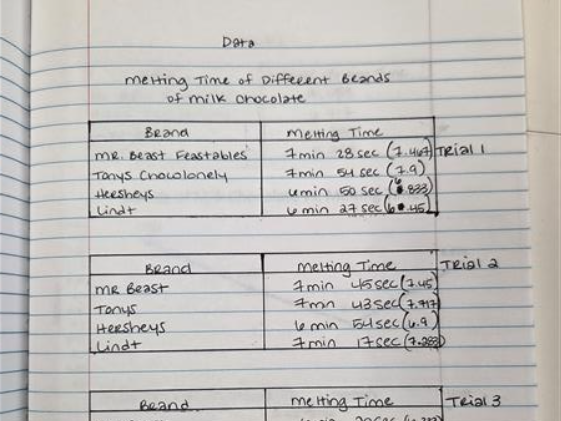 Data
Melting Time of Different Brands
of Milk Chocolate
Brand Melting Time
MR. Beast Feastables 7min 28sec (7.467) Trial 1
Tonys Chocolonely 7min 54sec (7.9)
Hersheys 6min 50sec (6.833)
Lindt 6min 27sec (6.45)
Brand Melting Time Trial 2
MR Beast 7min 45sec (7.45)
Tonys 7min 43sec (7.717)
Hersheys 6min 54sec (6.9)
Lindt 7min 17sec (7.283)
Brand Melting Time Trial 3